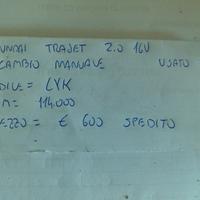 UNDAI TRAJET 2.0 16V
CAMBIO MANUALE USATO
DICE = LYK
M = 114.000
EZZO = € 600 SPEDITO